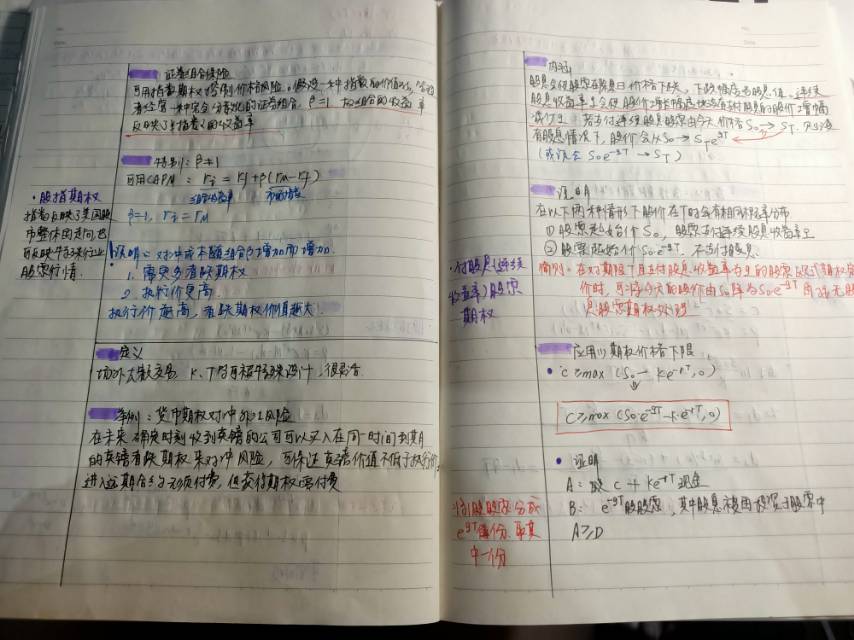 证券组合保险
可用指数期权控制价格风险。假设一种指数的价值为S₀,
者经营一种完全分散化的证券组合,β=1 故组合的收益率
反映了指数的收益率
特别:β≠1
可用CAPM:rᵢ = rf + β(rM - rf)
组合收益率 市场指数
β=1, rᵢ = rM
·股指期权
指数反映了美国股
市整体的走向,也
可反映特定行业
股票行情.
说明:对冲成本随组合β增加而增加.
1. 需更多看跌期权
2. 执行价更高
执行价越高,看跌期权价值越大
定义
场外大额交易 K、T均可被特殊设计,很灵活
举例:货币期权对冲外汇风险
在未来确定时刻收到英镑的公司可以买入在同一时间到期
的英镑看跌期权来对冲风险,可保证英镑价值不低于执行价
进入远期合约无须付费,但获得期权需付费
内涵
股息会使股票在除息日价格下跌,下跌幅度为股息值.连续
股息收益率q会使股价增长幅度比没有支付股息的股价增幅
减少q:若支付连续股息股票由今天价格S₀→S_T. 则在没
有股息情况下,股价会从S₀→S_T e^{qT}
(或说会 S₀e^{-qT}→S_T)
证明
在以下两种情形下股价在T时会有相同概率分布
① 股票起始价S₀,股票支付连续股息收益率q
② 股票起始价S₀e^{-qT}. 不支付股息.
·付股息(连续
收益率)股票
期权
简则:在对期限T且支付股息收益率为q的股票欧式期权定
价时,可将今天的股价由S₀降为S₀e^{-qT}
息股票期权处理
应用(1) 期权价格下限
• c≥max(S₀-Ke^{-rT},0)
c≥max(S₀e^{-qT}-Ke^{-rT},0)
• 证明
A:一股c+Ke^{-rT}现金
B:e^{-qT}股股票,其中股息被再投资于股票中
A≥D
将1股股票分成
e^{qT}等份、取其
中一份